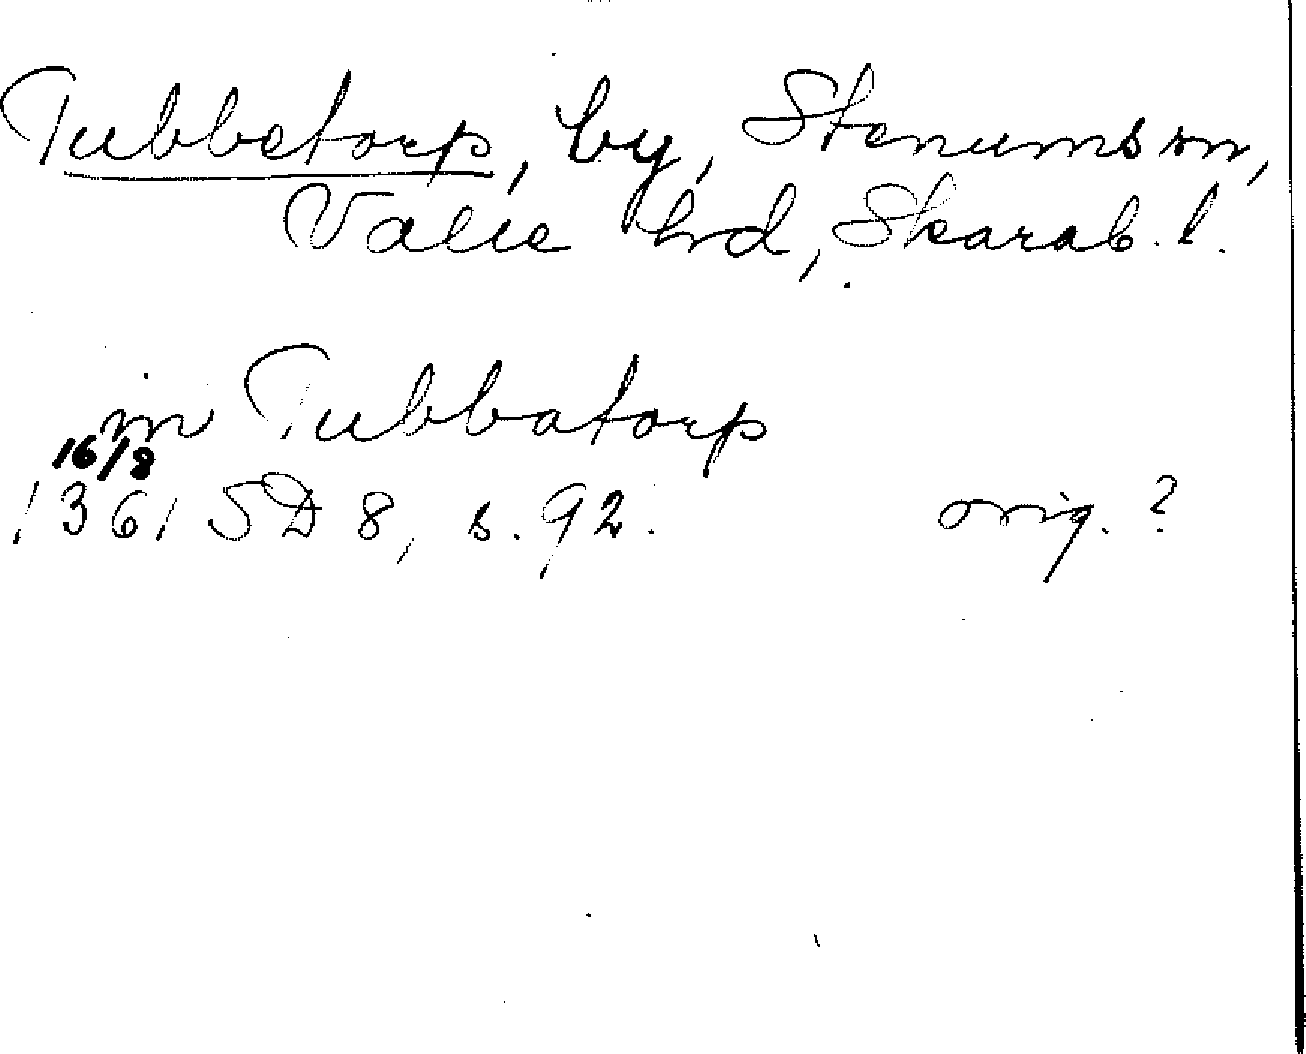 Tubbetorp, by, Stenums sn,
Valle hd, Skarab. l.
in Tubbatorp
16/8
1361 SD 8, s. 92. orig. ?